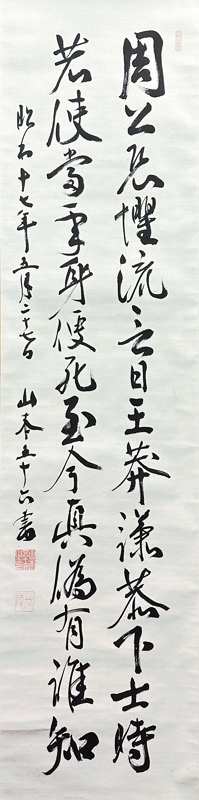 周公恐懼流言日王莽謙恭下士時
若使當年身便死至今真偽有誰知
昭和十七年五月二十七日 山本五十六書